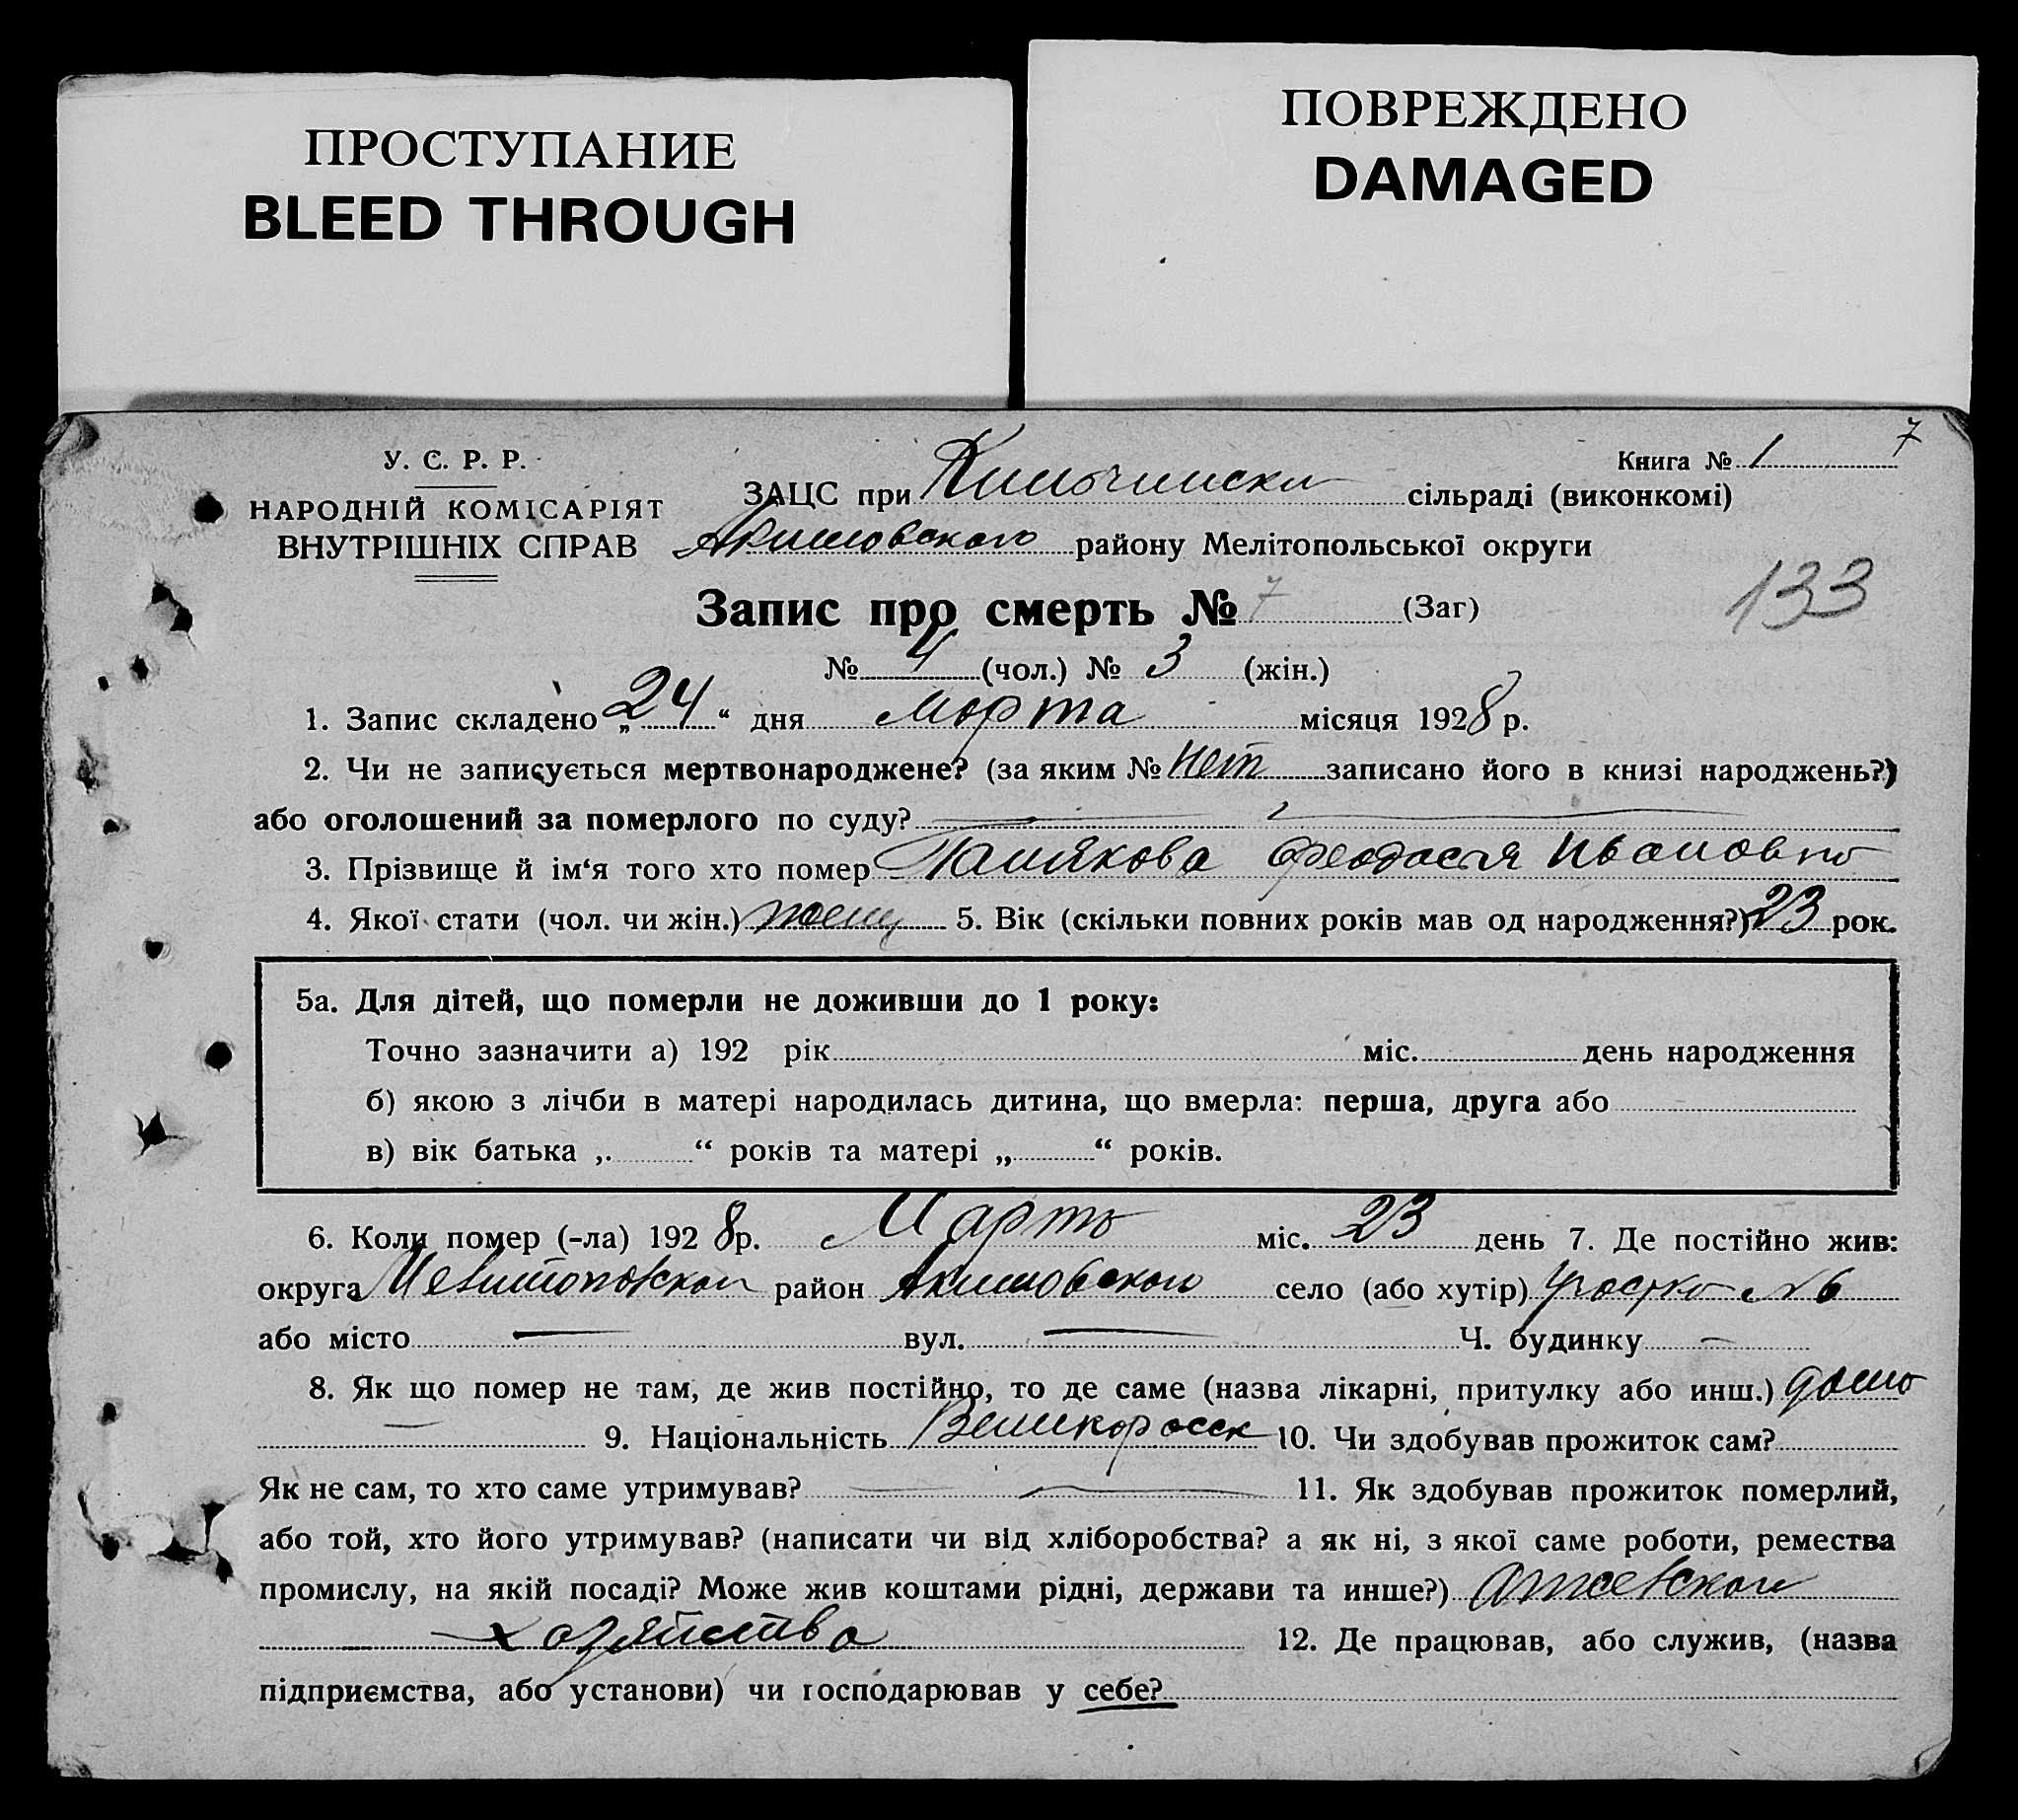 ПРОСТУПАНИЕ
BLEED THROUGH
ПОВРЕЖДЕНО
DAMAGED
7
У. С. Р. Р.
НАРОДНІЙ КОМІСАРІЯТ
ВНУТРІШНІХ СПРАВ
Книга № 1
ЗАЦС при сільраді (виконкомі)
Акимовского району Мелітопольської округи
133
Запис про смерть № 7 (Заг)
№ 4 (чол.) № 3 (жін.)
1. Запис складено „24“ дня Марта місяця 1928 р.
2. Чи не записується мертвонароджене? (за яким № Нет записано його в книзі народжень?)
або оголошений за померлого по суду? —
3. Прізвище й ім‘я того хто помер Феодосия Ивановно
4. Якої стати (чол. чи жін.) женщ 5. Вік (скільки повних років мав од народження?) 23 рок.
5а. Для дітей, що померли не доживши до 1 року:
Точно зазначити а) 192 рік міс. день народження
б) якою з лічби в матері народилась дитина, що вмерла: перша, друга або
в) вік батька „ “ років та матері „ “ років.
6. Коли помер (-ла) 1928 р. Марта міс. 23 день 7. Де постійно жив:
округа Мелитопольской район Акимовского село (або хутір) Участко №6
або місто — вул. — Ч. будинку —
8. Як що помер не там, де жив постійно, то де саме (назва лікарні, притулку або инш.) дома
— 9. Національність Великоросск 10. Чи здобував прожиток сам?
Як не сам, то хто саме утримував? — 11. Як здобував прожиток померлий,
або той, хто його утримував? (написати чи від хліборобства? а як ні, з якої саме роботи, ремества
промислу, на якій посаді? Може жив коштами рідні, держави та инше?)
хозяйства 12. Де працював, або служив, (назва
підприємства, або установи) чи господарював у себе?